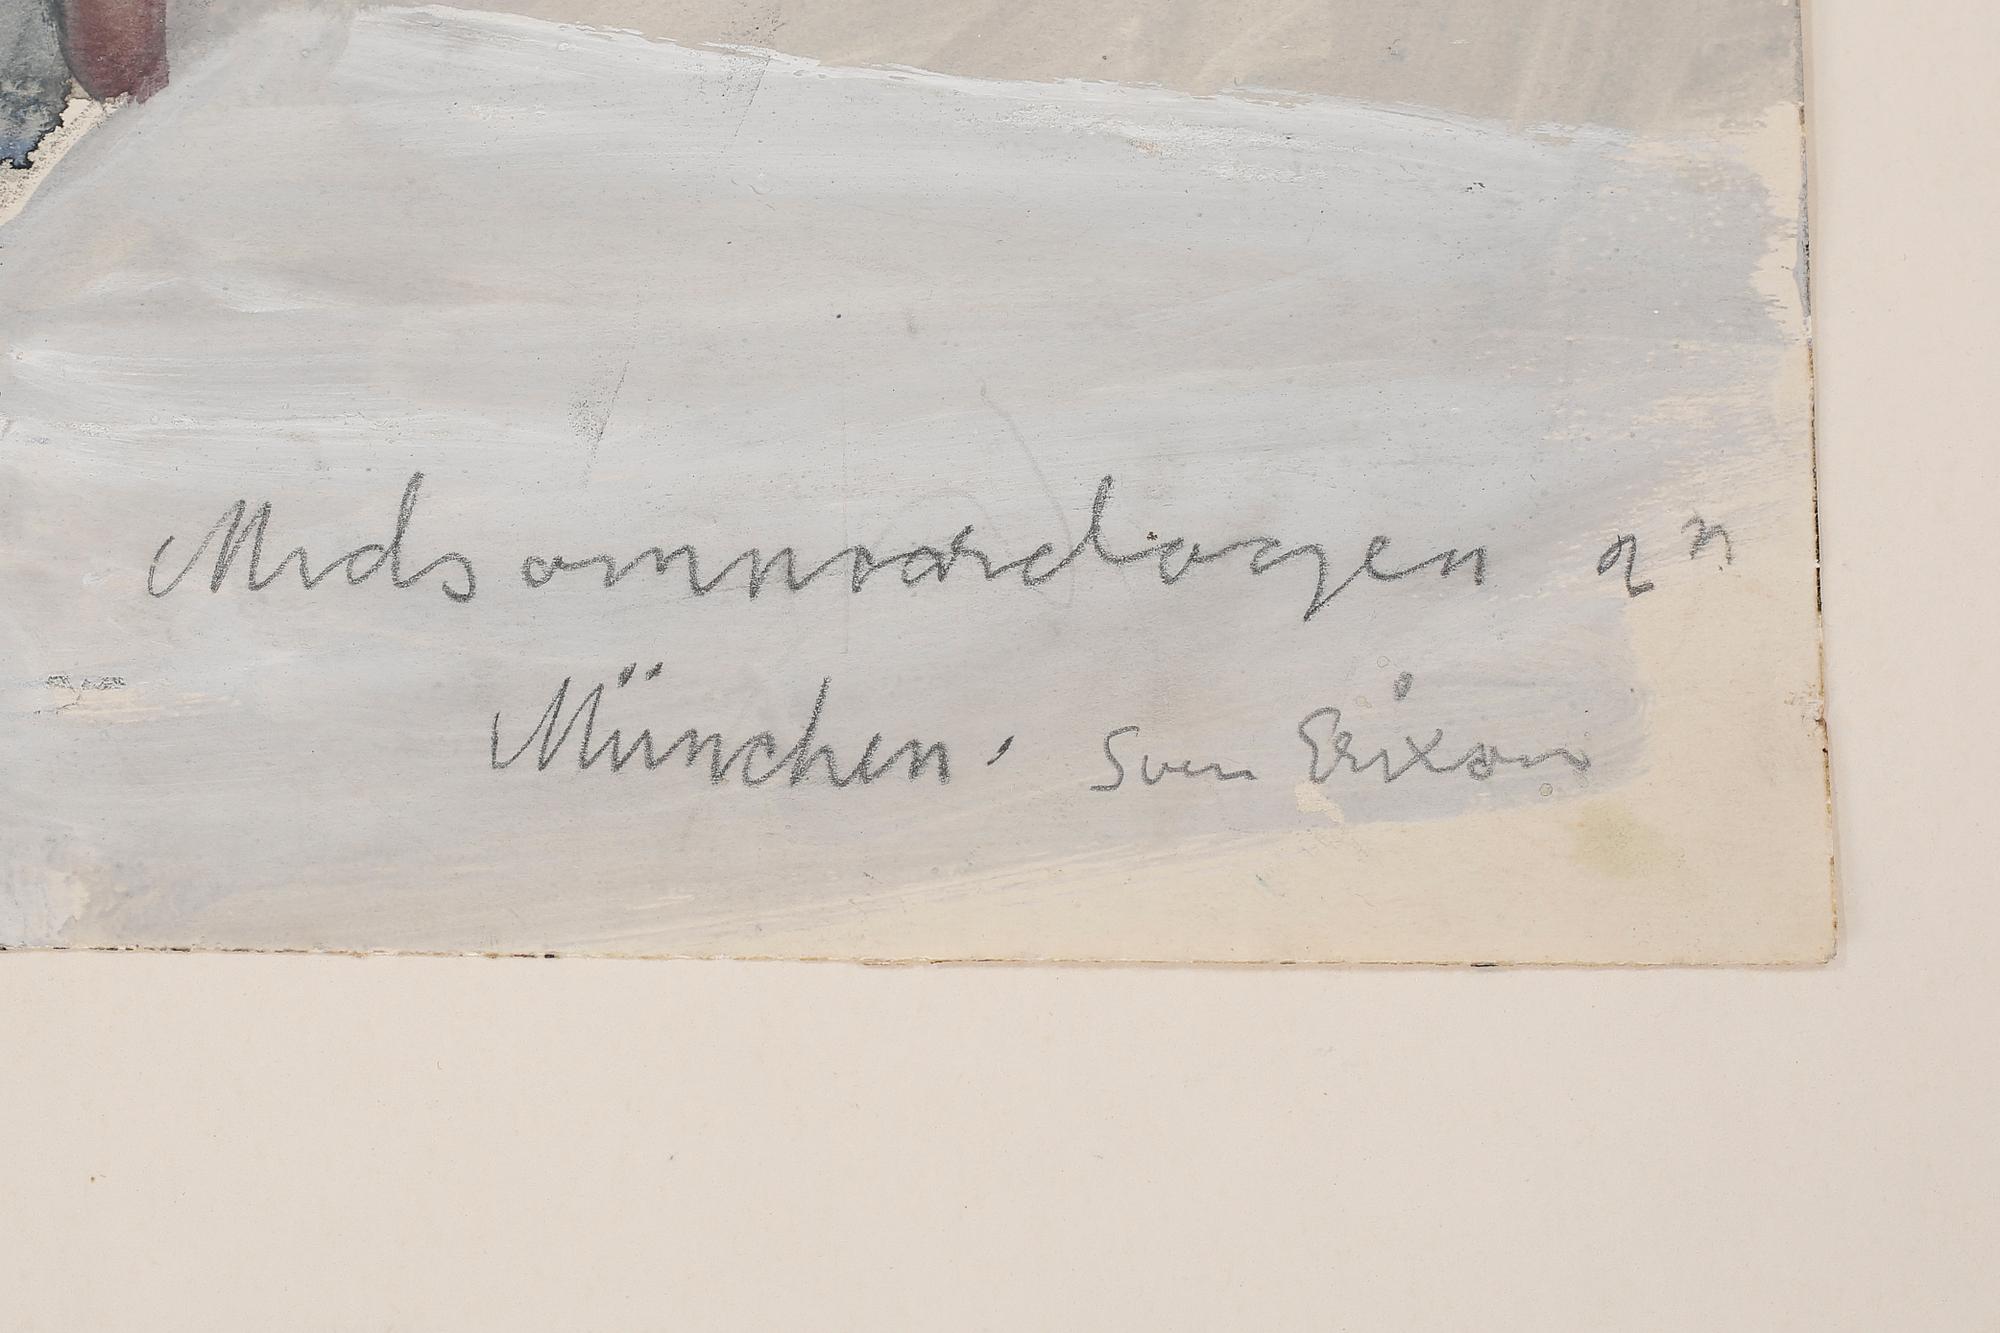 Midsommardagen
München. Sven Erixon